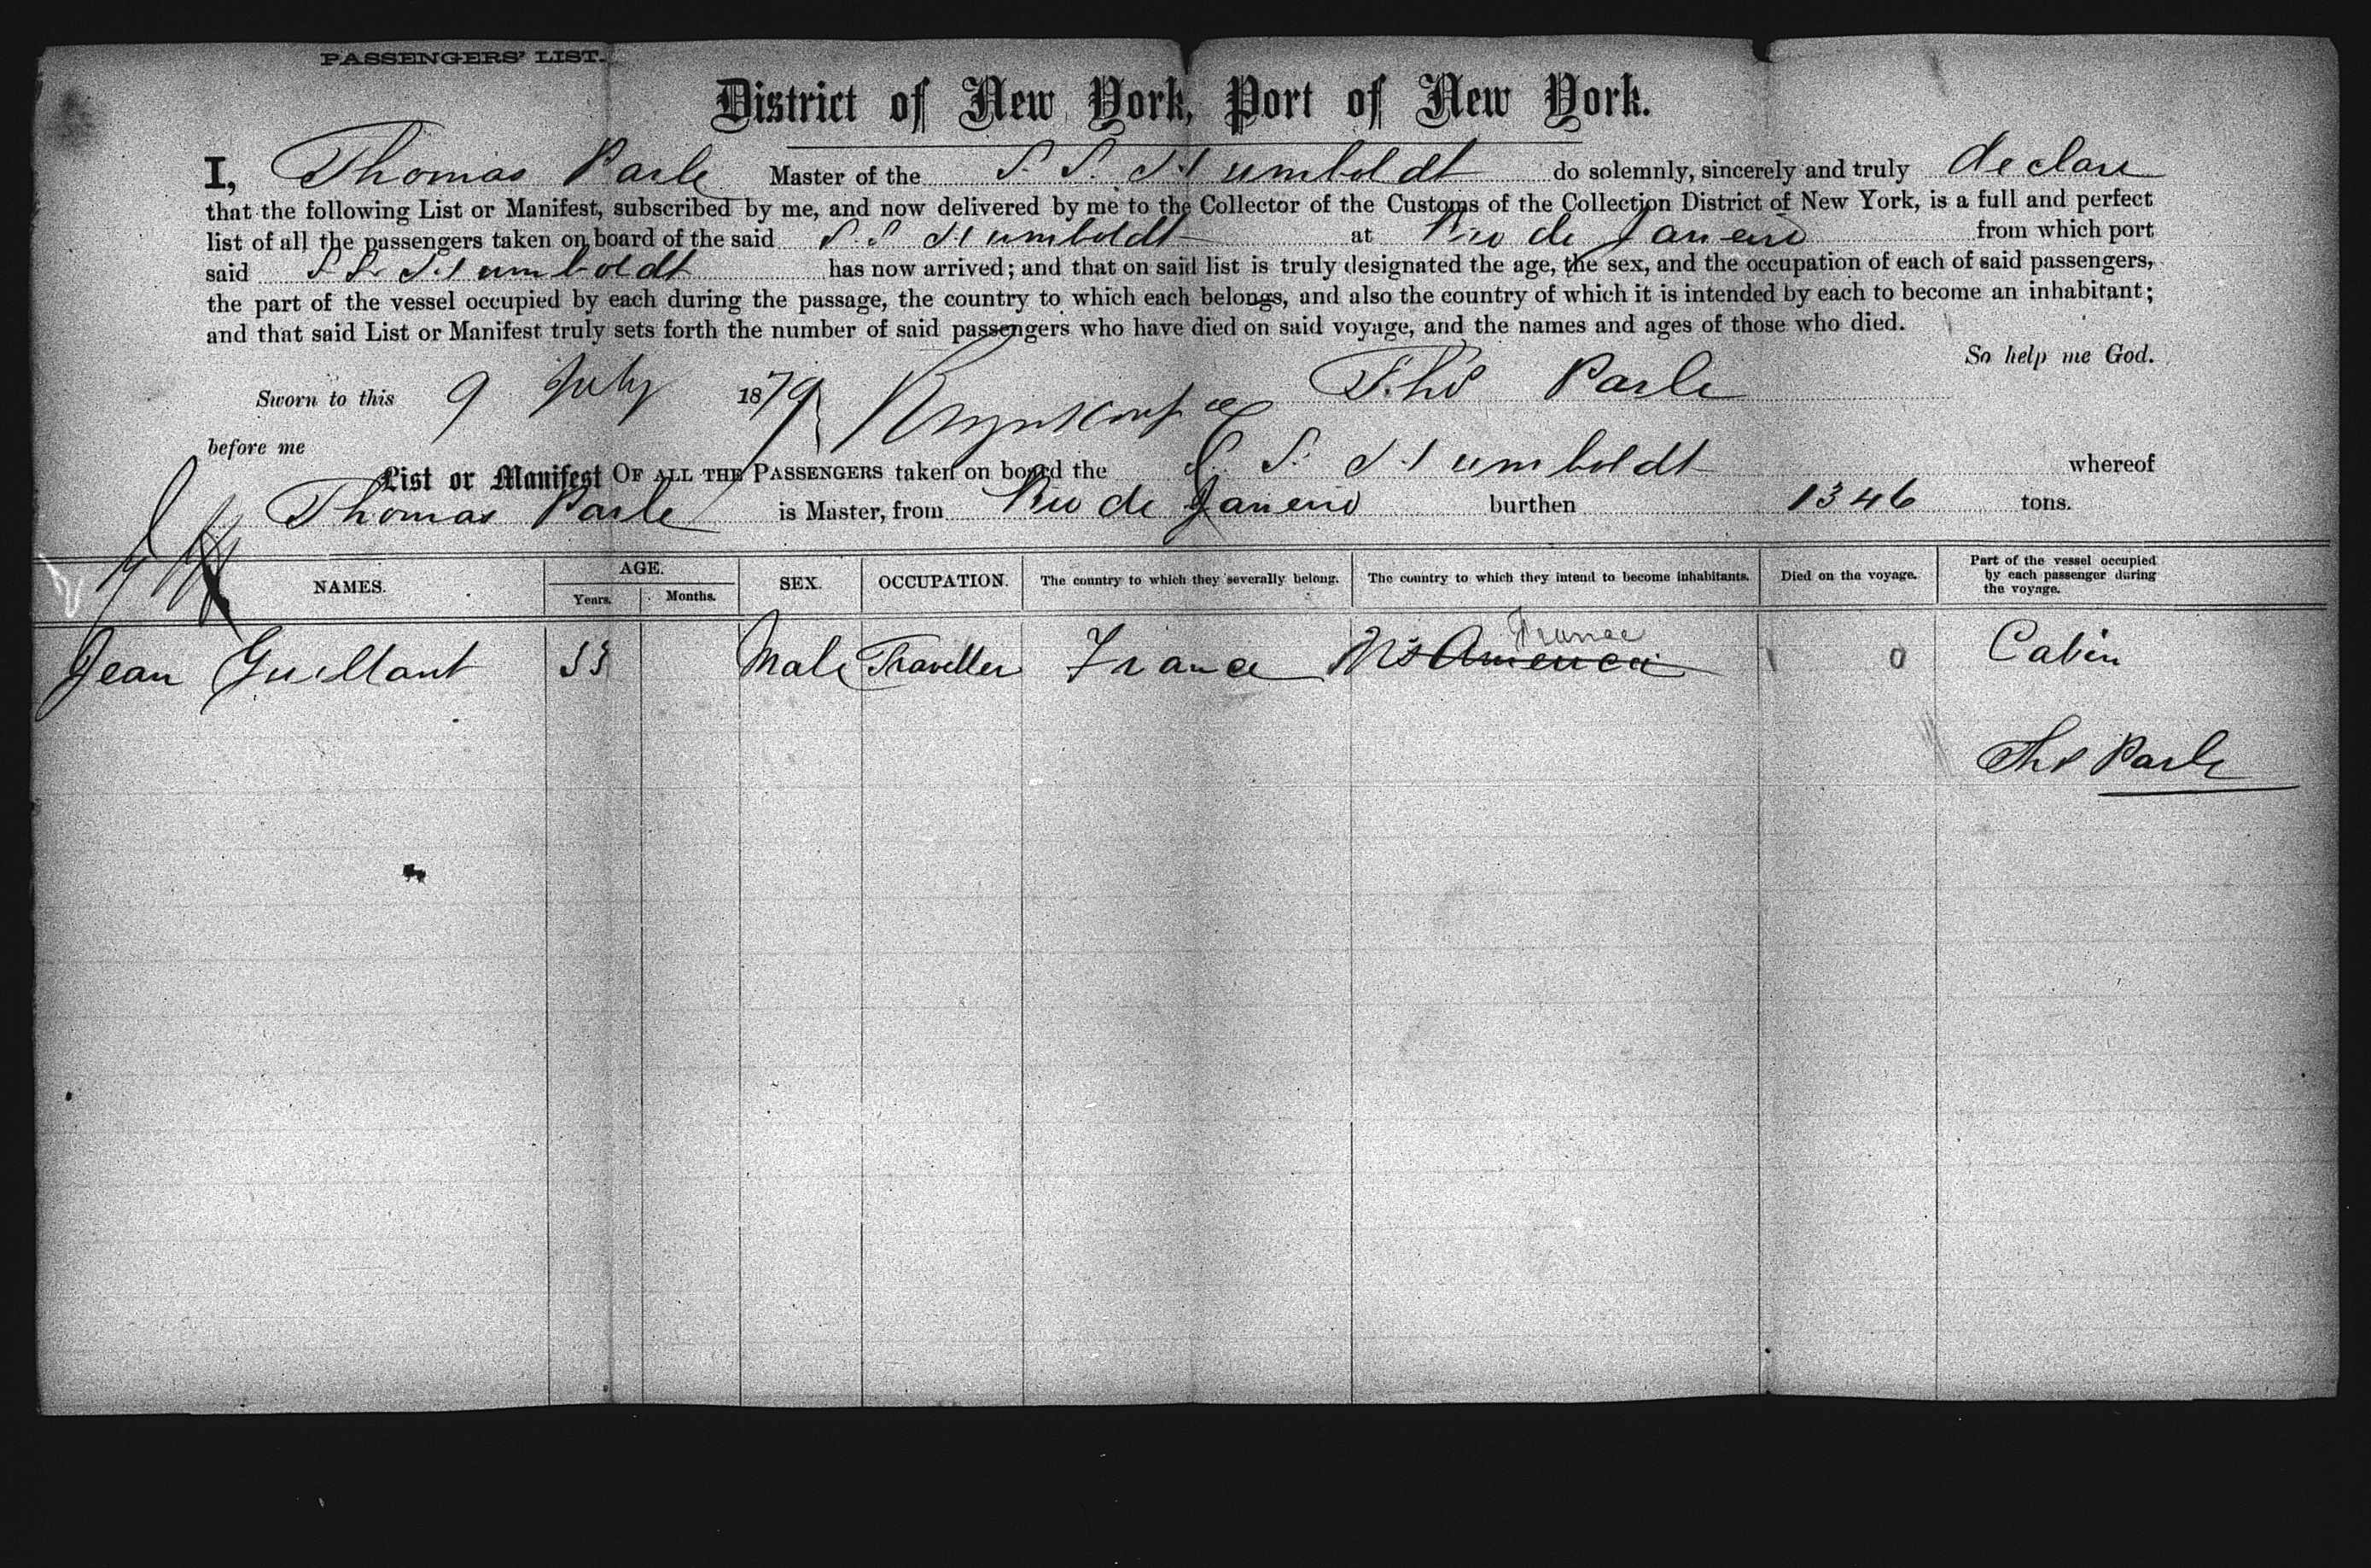 PASSENGERS' LIST.
District of New York, Port of New York.
I, Thomas Parle Master of the S. S. Humboldt do solemnly, sincerely and truly declare
that the following List or Manifest, subscribed by me, and now delivered by me to the Collector of the Customs of the Collection District of New York, is a full and perfect
list of all the passengers taken on board of the said S. S. Humboldt at Rio de Janeiro from which port
said S. S. Humboldt has now arrived; and that on said list is truly designated the age, the sex, and the occupation of each of said passengers,
the part of the vessel occupied by each during the passage, the country to which each belongs, and also the country of which it is intended by each to become an inhabitant;
and that said List or Manifest truly sets forth the number of said passengers who have died on said voyage, and the names and ages of those who died.
So help me God.
Sworn to this 9 July 1879 Thos Parle
before me
List or Manifest OF ALL THE PASSENGERS taken on board the S. S. Humboldt whereof
Thomas Parle is Master, from Rio de Janeiro burthen 1346 tons.
NAMES. AGE. Years. Months. SEX. OCCUPATION. The country to which they severally belong. The country to which they intend to become inhabitants. Died on the voyage. Part of the vessel occupied by each passenger during the voyage.
France
Jean Male Traveller France America 0 Cabin
Thos Parle